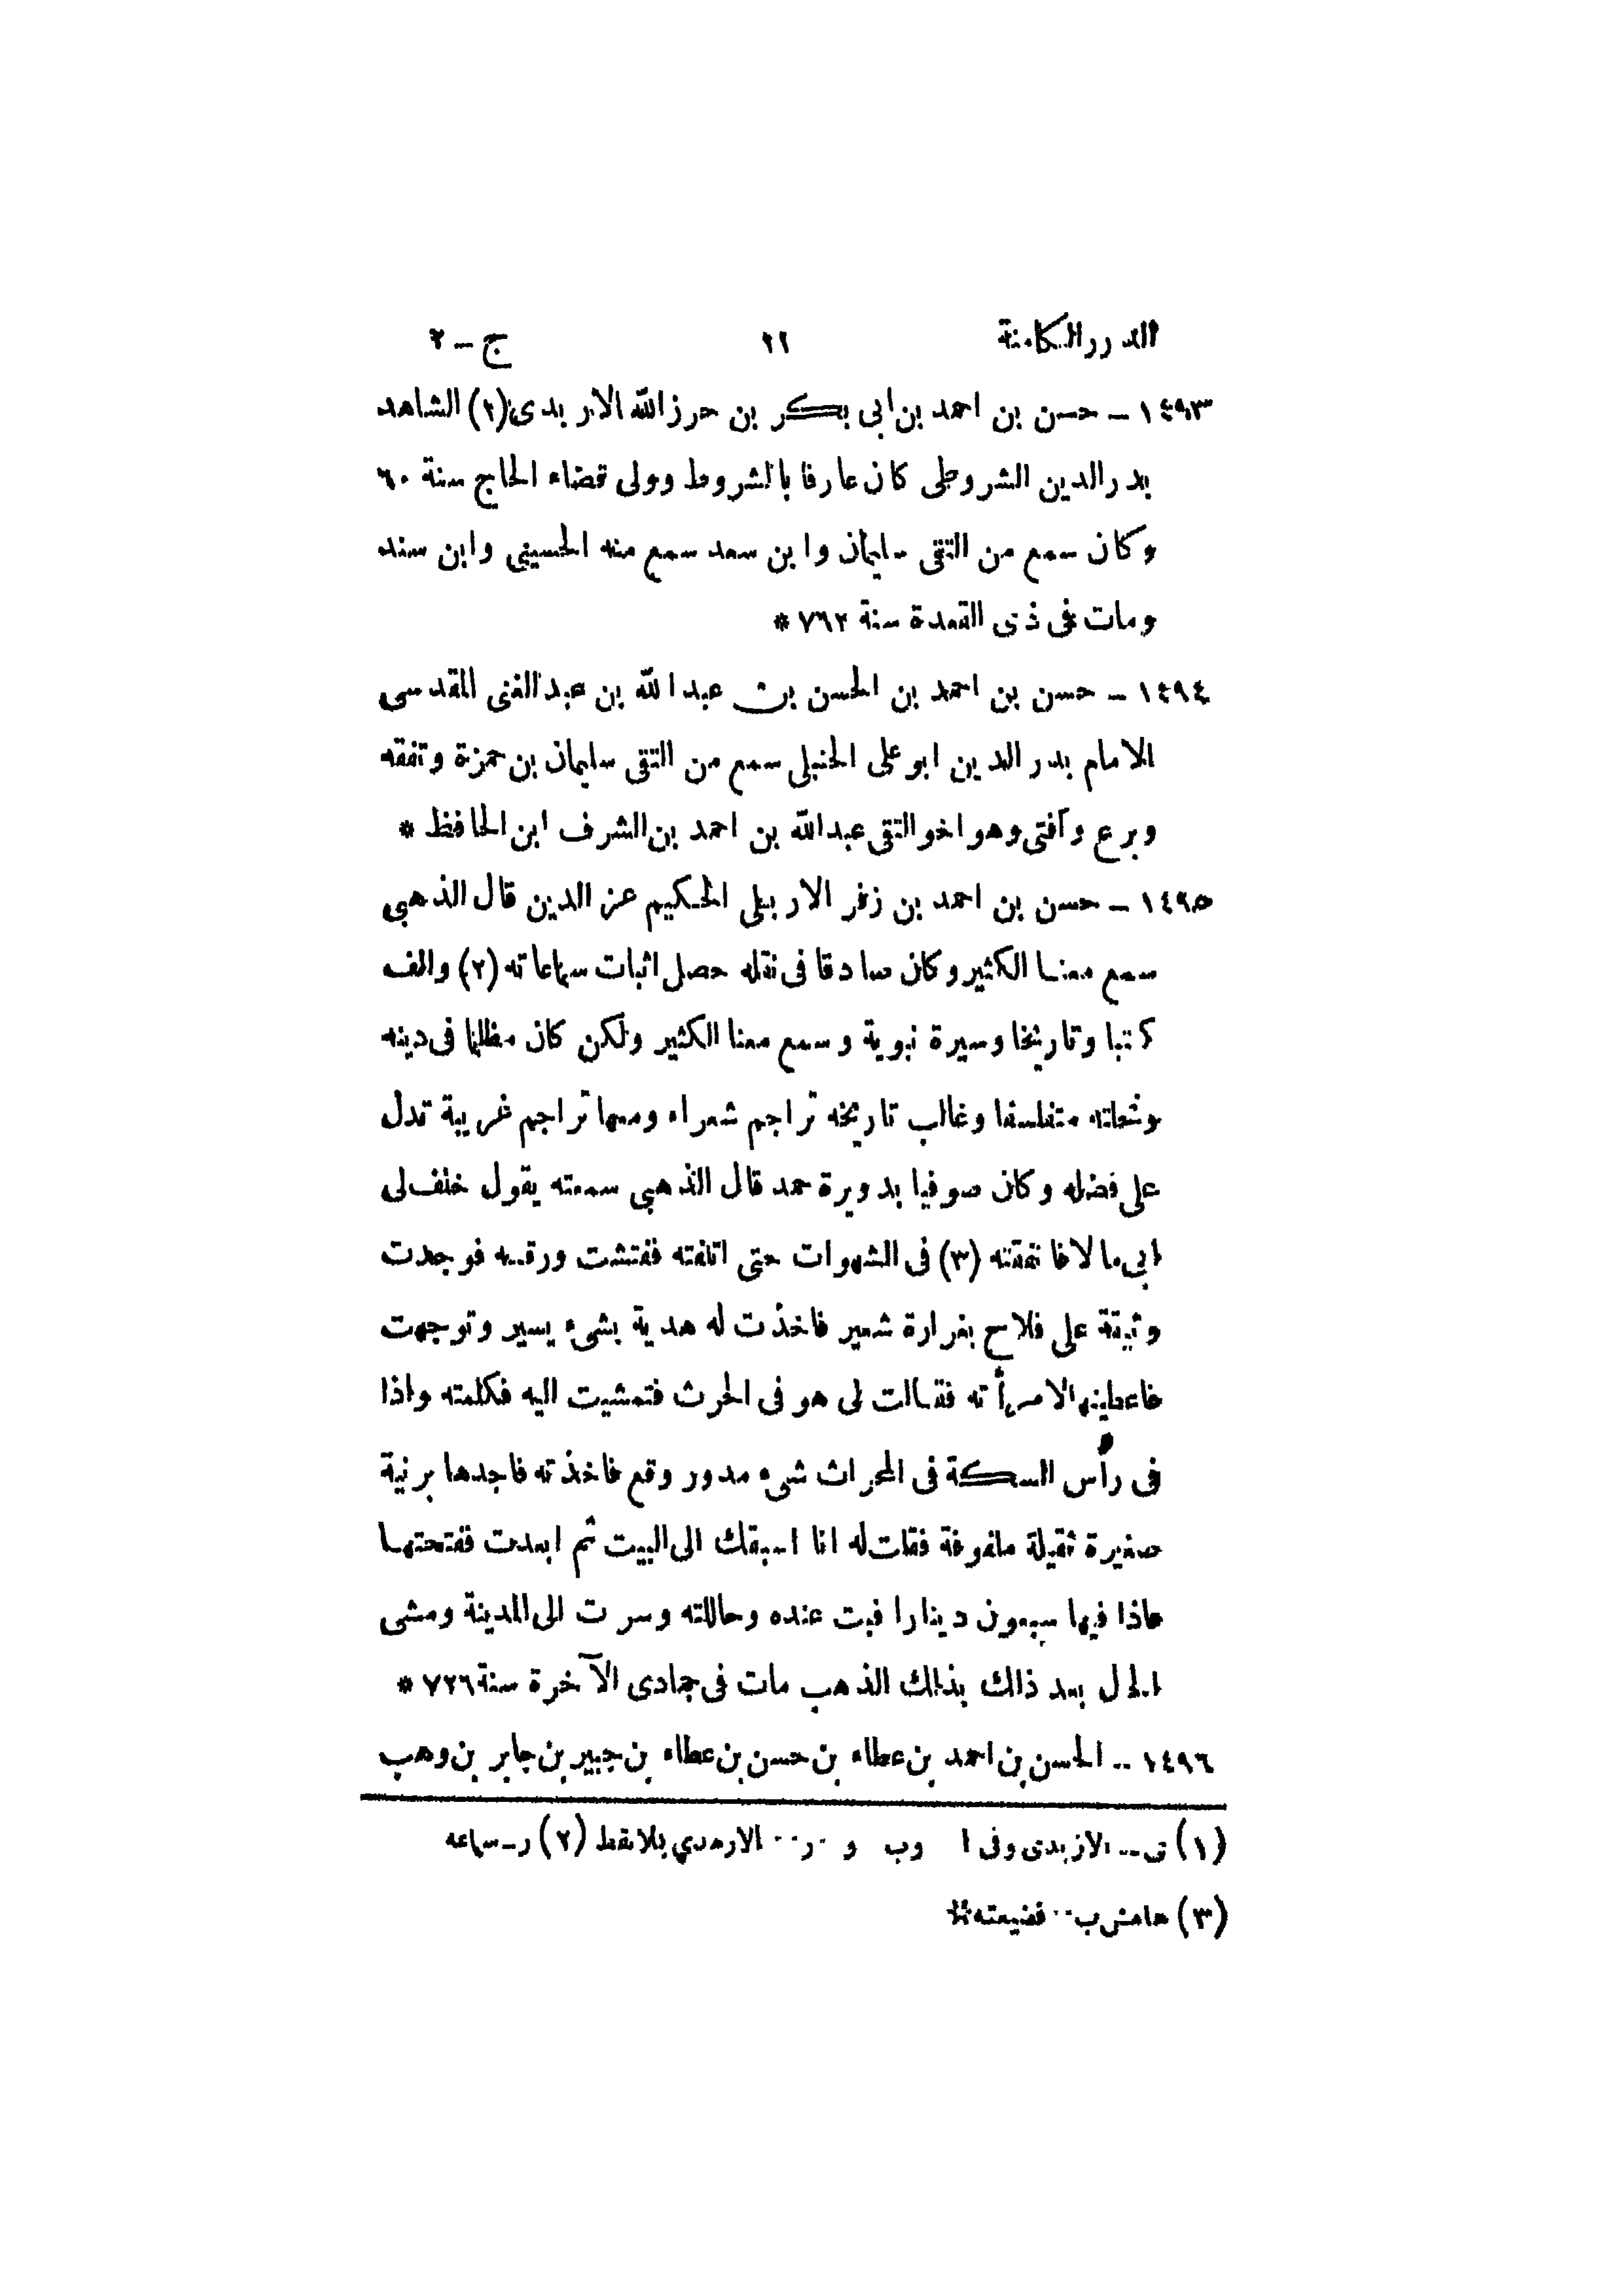 الدرر الكامنة ١١ ج - ٢
١٤٩٣ - حسن بن احمد بن ابى بكر بن حرز الله الاربدى (١) الشاهد
بدر الدين الشروطى كان عارفا بالشروط وولى قضاء الحاج سنة ٦٠
وكان سمع من التقى سليمان وابن سعد سمع منه الحسينى وابن سند
ومات فى ذى القعدة سنة ٧٦٢ *
١٤٩٤ - حسن بن احمد بن الحسن بن عبد الله بن عبد الغنى المقدسى
الامام بدر الدين ابو على الحنبلى سمع من التقى سليمان بن حمزة وتفقه
وبرع وأفتى وهو اخو التقى عبد الله بن احمد بن الشرف ابن الحافظ *
١٤٩٥ - حسن بن احمد بن زفر الاربلى الحكيم عز الدين قال الذهبى
سمع معنا الكثير وكان صادقا فى نقله حصل اثبات سماعاته (٢) والف
كتبا وتاريخا وسيرة نبوية وسمع معنا الكثير ولكن كان مظلما فى دينه
ونحلته متفلسفا وغالب تاريخه تراجم شعراء ومعها تراجم غريبة تدل
على فضله وكان صوفيا بدويرة حمد قال الذهبى سمعته يقول خلف لى
ابى مالا فانفقته (٣) فى الشهوات حتى اتلفته ففتشت ورقه فوجدت
وثيقة على فلاح بغرارة شعير فاخذت له هدية بشىء يسير وتوجهت
فاعطيتها لامرأته فقالت لى هو فى الحرث فتمشيت اليه فكلمته واذا
فى رأس السكة فى المحراث شىء مدور وقع فاخذته فاجدها برنية
صغيرة ثقيلة ملفوفة فقلت له انا اسبقك الى البيت ثم ابعدت ففتحتها
فاذا فيها سبعون دينارا فبت عنده وحاللته وسرت الى المدينة ومشى
الحال بعد ذلك بذلك الذهب مات فى جمادى الآخرة سنة ٧٢٦ *
١٤٩٦ - الحسن بن احمد بن عطاء بن حسن بن عطاء بن جبير بن جابر بن وهب
(١) ق - الازبدى وفى ا وب و ر - الارىدي بلا نقط (٢) ر - سماعه
(٣) هامش ب - فضيعته *